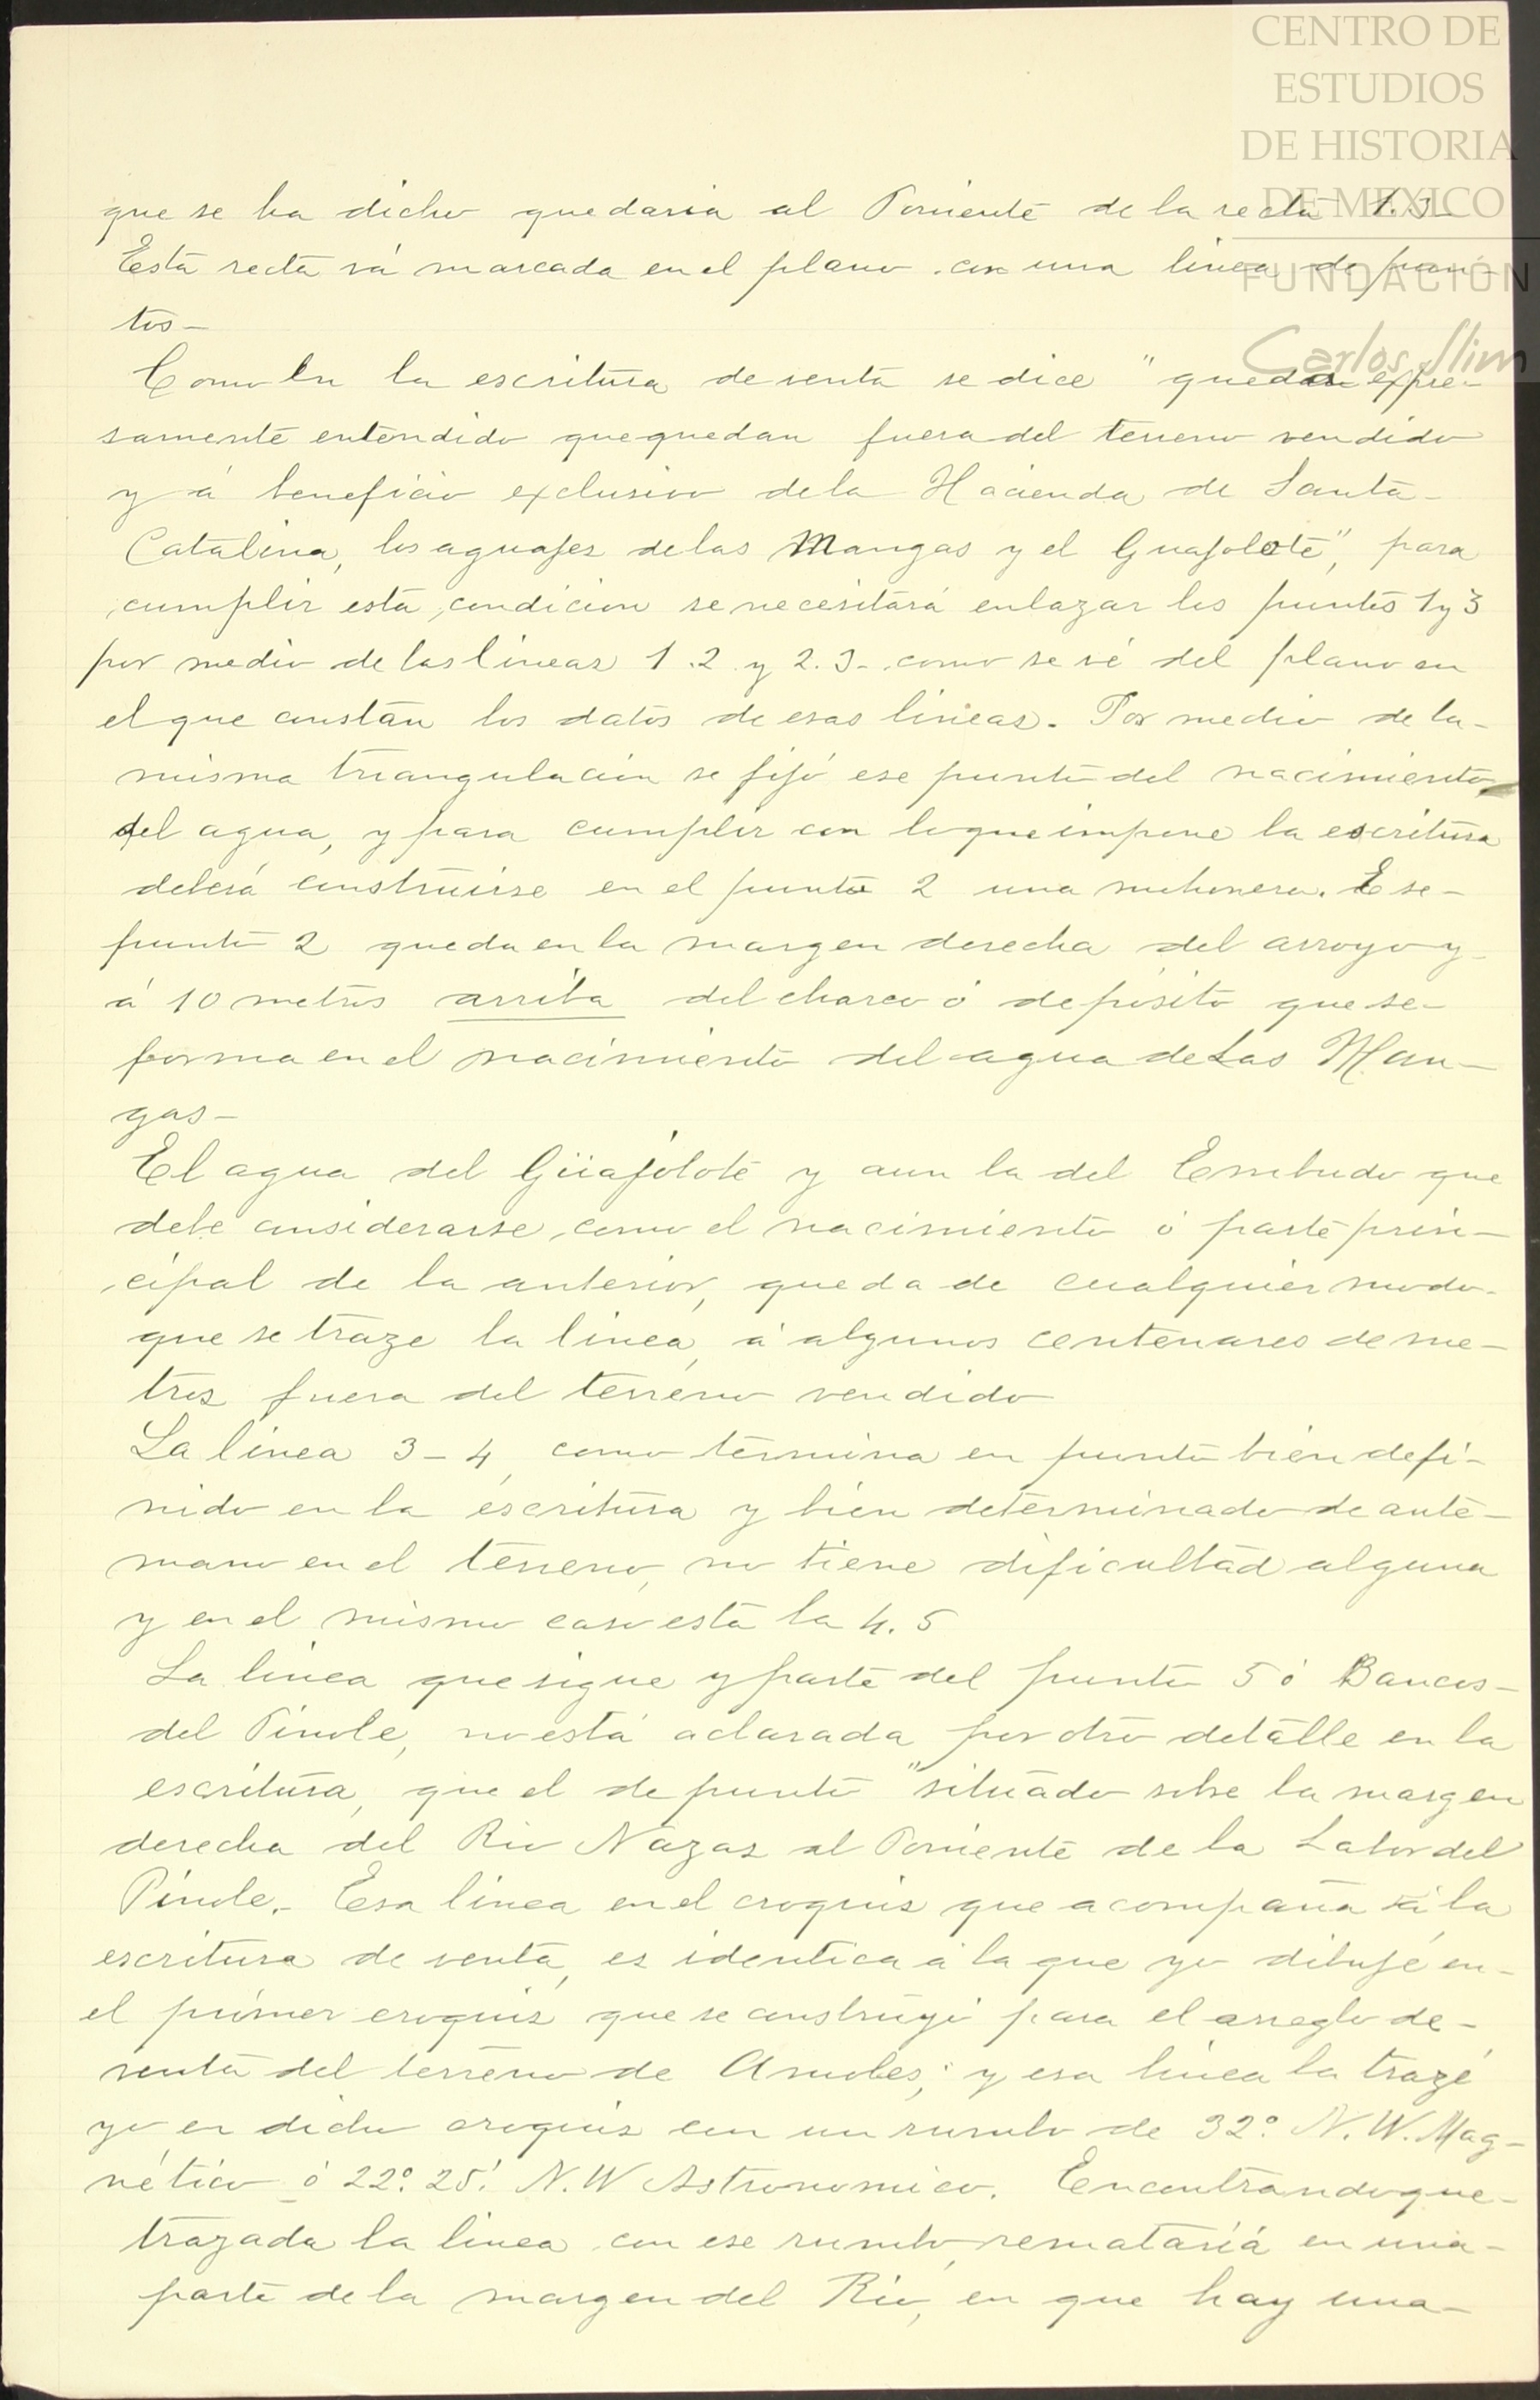 CENTRO DE
ESTUDIOS
DE HISTORIA
DE MEXICO
FUNDACIÓN
Carlos Slim
que se ha dicho quedaria al Poniente de la recta 1.3-
Esta recta vá marcada en el plano con una linea de pun-
tos-
Como en la escritura de venta se dice "quedan expre-
samente entendido que quedan fuera del terreno vendido
y á beneficio exclusivo de la Hacienda de Santa-
Catalina, los aguajes de las Mangas y el Guajolote", para
cumplir esta condicion se necesitará enlazar los puntos 1 y 3
por medio de las lineas 1.2 y 2.3- como se vé del plano en
el que constan los datos de esas lineas. Por medio de la-
misma triangulación se fijó ese punto del nacimiento
del agua, y para cumplir con lo que impone la escritura
deberá construirse en el punto 2 una mohonera. Ese-
punto 2 queda en la margen derecha del arroyo y-
á 10 metros arriba del charco ó depósito que se-
forma en el nacimiento del agua de Las Man-
gas-
El agua del Güajolote y aun la del Embudo que
debe considerarse, como el nacimiento ó parte prin-
cipal de la anterior, queda de cualquier modo-
que se traze la linea, á algunos centenares de me-
tros fuera del terreno vendido
La linea 3-4, como termina en punto bien defi-
nido en la escritura y bien determinado de ante-
mano en el terreno, no tiene dificultad alguna
y en el mismo caso está la 4.5
La linea que sigue y parte del punto 5 ó Bancos-
del Pinole, no está aclarada por otro detalle en la
escritura, que el de punto "situado sobre la margen
derecha del Rio Nazas al Poniente de la Labor del
Pinole.- Esa linea en el croquis que acompaña á la
escritura de venta, es identica á la que yo dibujé en-
el primer croquis que se construyó para el arreglo de-
venta del terreno de Amoles; y esa linea la trazé
yo en dicho croquis con un rumbo de 32° N.W. Mag-
nético ó 22° 25' N.W Astronomico. Encontrando que-
trazada la linea con ese rumbo, remataría en una-
parte de la margen del Rio, en que hay una-